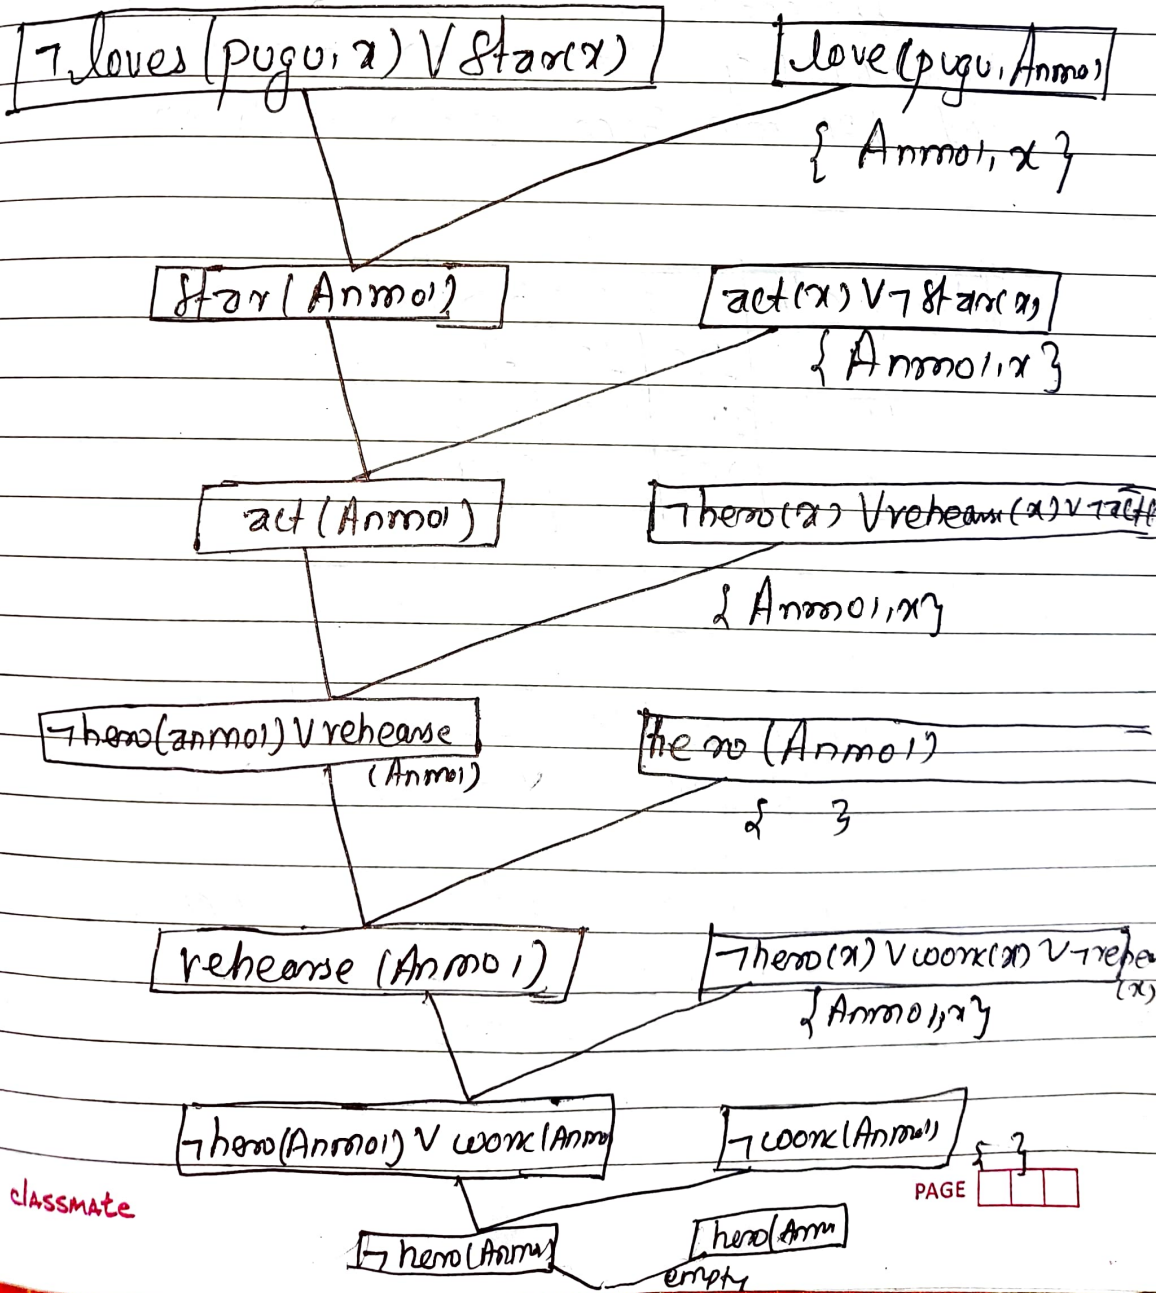 ¬loves(pugu, x) V Star(x) love(pugu, Anmol
{ Anmol, x }
Star(Anmol) act(x) V ¬Star(x)
{ Anmol, x }
act(Anmol) ¬hero(x) V rehearse(x) V ¬act(
{ Anmol, x }
¬hero(anmol) V rehearse hero(Anmol)
(Anmol) { }
rehearse (Anmol) ¬hero(x) V work(x) V ¬rehe
(x)
{ Anmol, x }
¬hero(Anmol) V work(Anmo ¬work(Anmol) { }
classmate PAGE
¬hero(Anmol) hero(Anm
empty